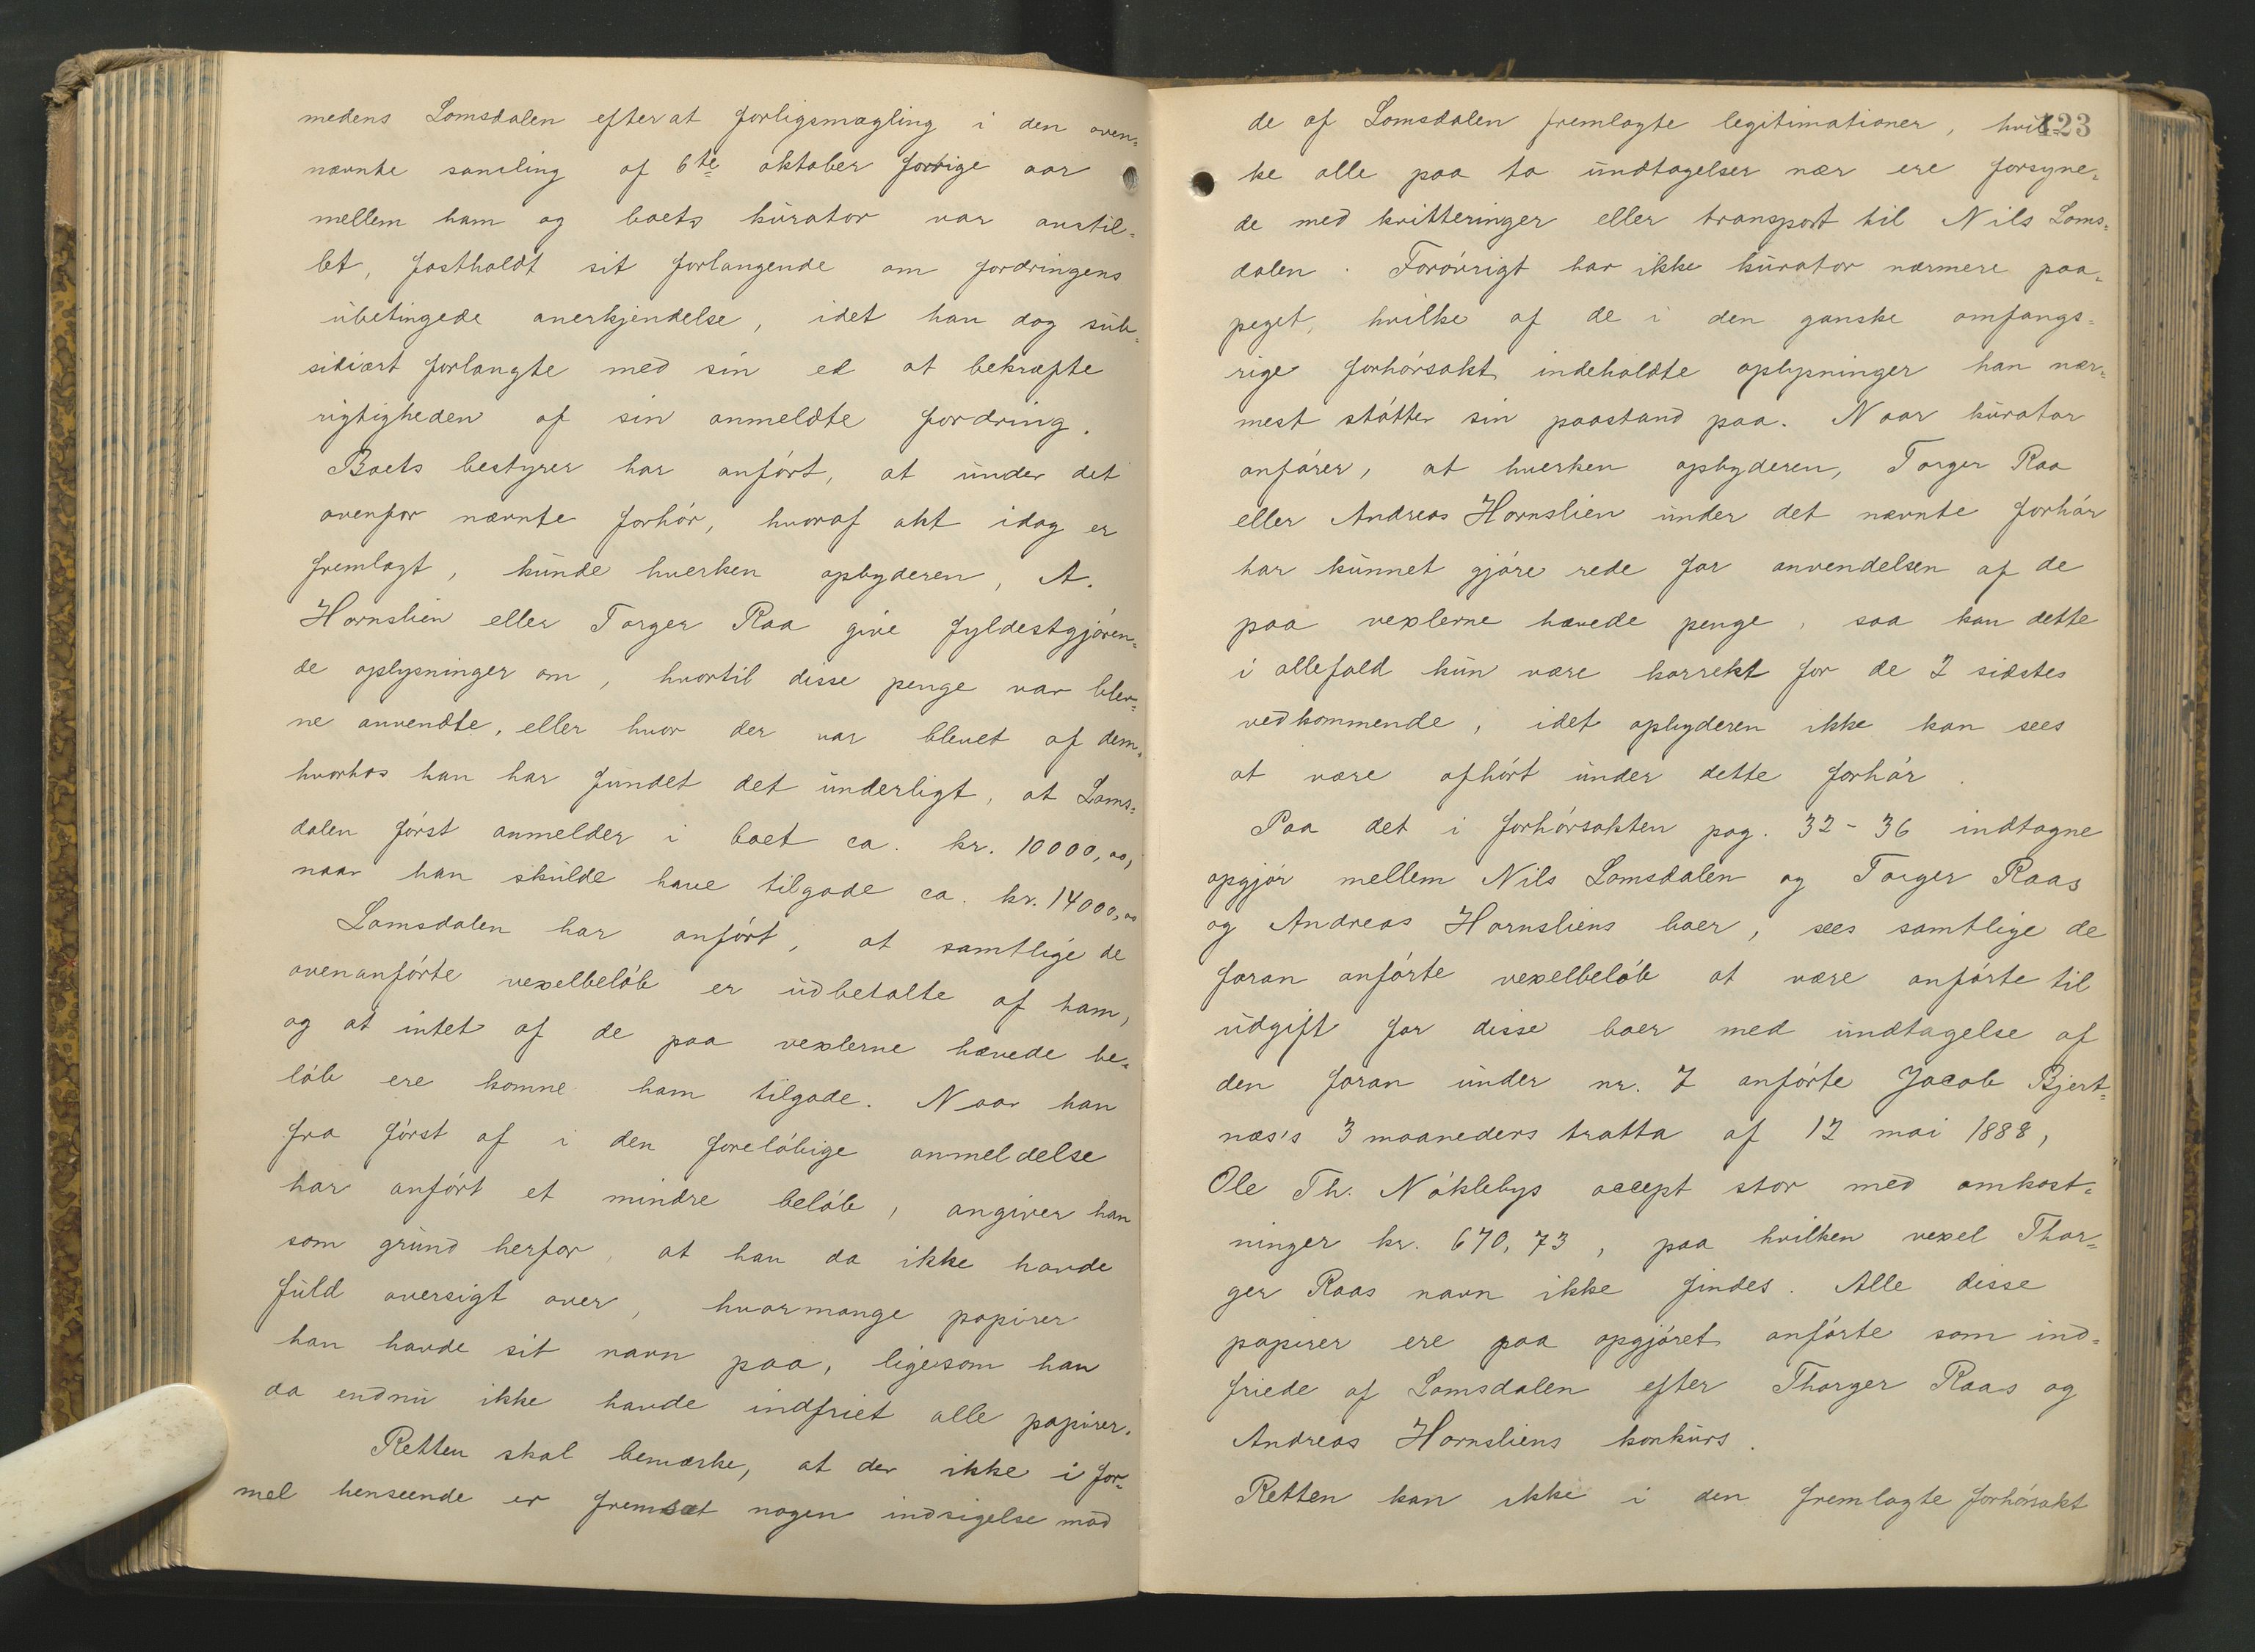 medens Lomsdalen efterat forligsmægling i den oven-
nævnte samling af 6te oktober forrige aar
mellem ham og boets kurator var anstil-
let, fastholdt sit forlangende om fordringens
ubetingede anerkjendelse, idet han dog sub-
sidiært forlangte med sin ed at bekræfte
rigtigheden af sin anmeldte fordring.
Boets bestyrer har anført, at under det
ovenfor nævnte forhør, hvoraf akt idag er
fremlagt, kunde hverken opbyderen, A.
Hornslien eller Torger Raa give fyldestgjøren-
de oplysninger om, hvortil disse penge var blev-
ne anvendte, eller hvor der var blevet af dem,
hvorhos han har fundet det underligt, at Loms-
dalen først anmelder i boet ca. kr. 10000,00,
naar han skulde have tilgode ca. kr. 14000,00
Lomsdalen har anført, at samtlige de
ovenanførte vexelbeløb er udbetalte af ham,
og at intet af de paa vexlerne hævede be-
løb ere komne ham tilgode. Naar han
fra først af i den foreløbige anmeldelse
har anført et mindre beløb, angiver han
som grund herfor, at han da ikke havde
fuld oversigt over, hvormange papirer
han havde sit navn paa, ligesom han
da endnu ikke havde indfriet alle papirer.
Retten skal bemærke, at der ikke i for-
mel henseende er fremsat nogen indsigelse mod
423
de af Lomsdalen fremlagte legitimationer, hvil-
ke alle paa to undtagelser nær ere forsyne-
de med kvitteringer eller transport til Nils Loms-
dalen. Forøvrigt har ikke kurator nærmere paa-
peget, hvilke af de i den ganske omfangs-
rige forhørsakt indeholdte oplysninger han nær-
mest støtter sin paastand paa. Naar kurator
anfører, at hverken opbyderen, Torger Raa
eller Andreas Hornslien under det nævnte forhør
har kunnet gjøre rede for anvendelsen af de
paa vexlerne hævede penge, saa kan dette
i allefald kun være korrekt for de 2 sidstes
vedkommende, idet opbyderen ikke kan sees
at være afhørt under dette forhør.
Paa det i forhørsakten pag. 32-36 indtagne
opgjør mellem Nils Lomsdalen og Torger Raas
og Andreas Hornsliens boer, sees samtlige de
foran anførte vexelbeløb at være anførte til
udgift for disse boer med undtagelse af
den foran under nr. 7 anførte Jacob Bjert-
næs's 3 maaneders tratta af 12 mai 1888,
Ole Th. Nøklebys accept stor med omkost-
ninger kr. 670,73, paa hvilken vexel Thor-
ger Raas navn ikke findes. Alle disse
papirer ere paa opgjøret anførte som ind-
friede af Lomsdalen efter Thorger Raas og
Andreas Hornsliens konkurs.
Retten kan ikke i den fremlagte forhørsakt